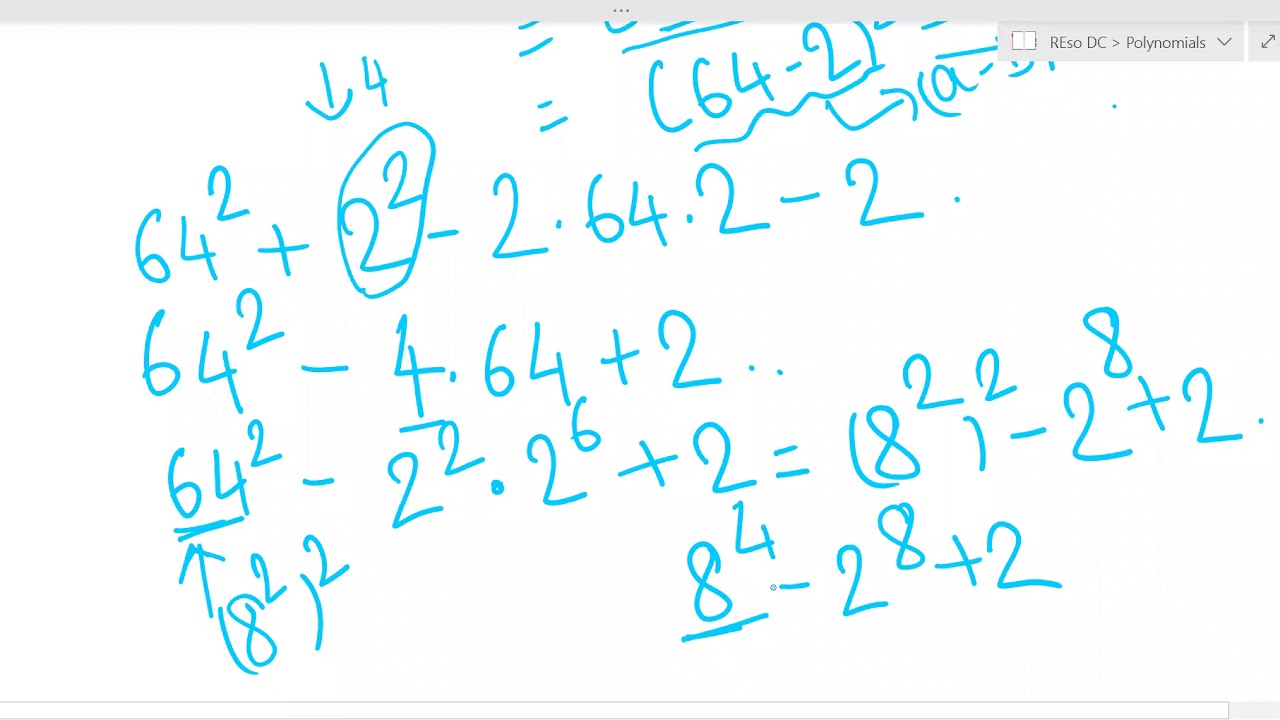 REso DC > Polynomials
= (64-2)²
↓4
64² + 2² - 2·64·2 - 2.
64² - 4·64 + 2..
64² - 2²·2⁶ + 2 = (8²)² - 2⁸ + 2.
(8²)²
8⁴ - 2⁸ + 2